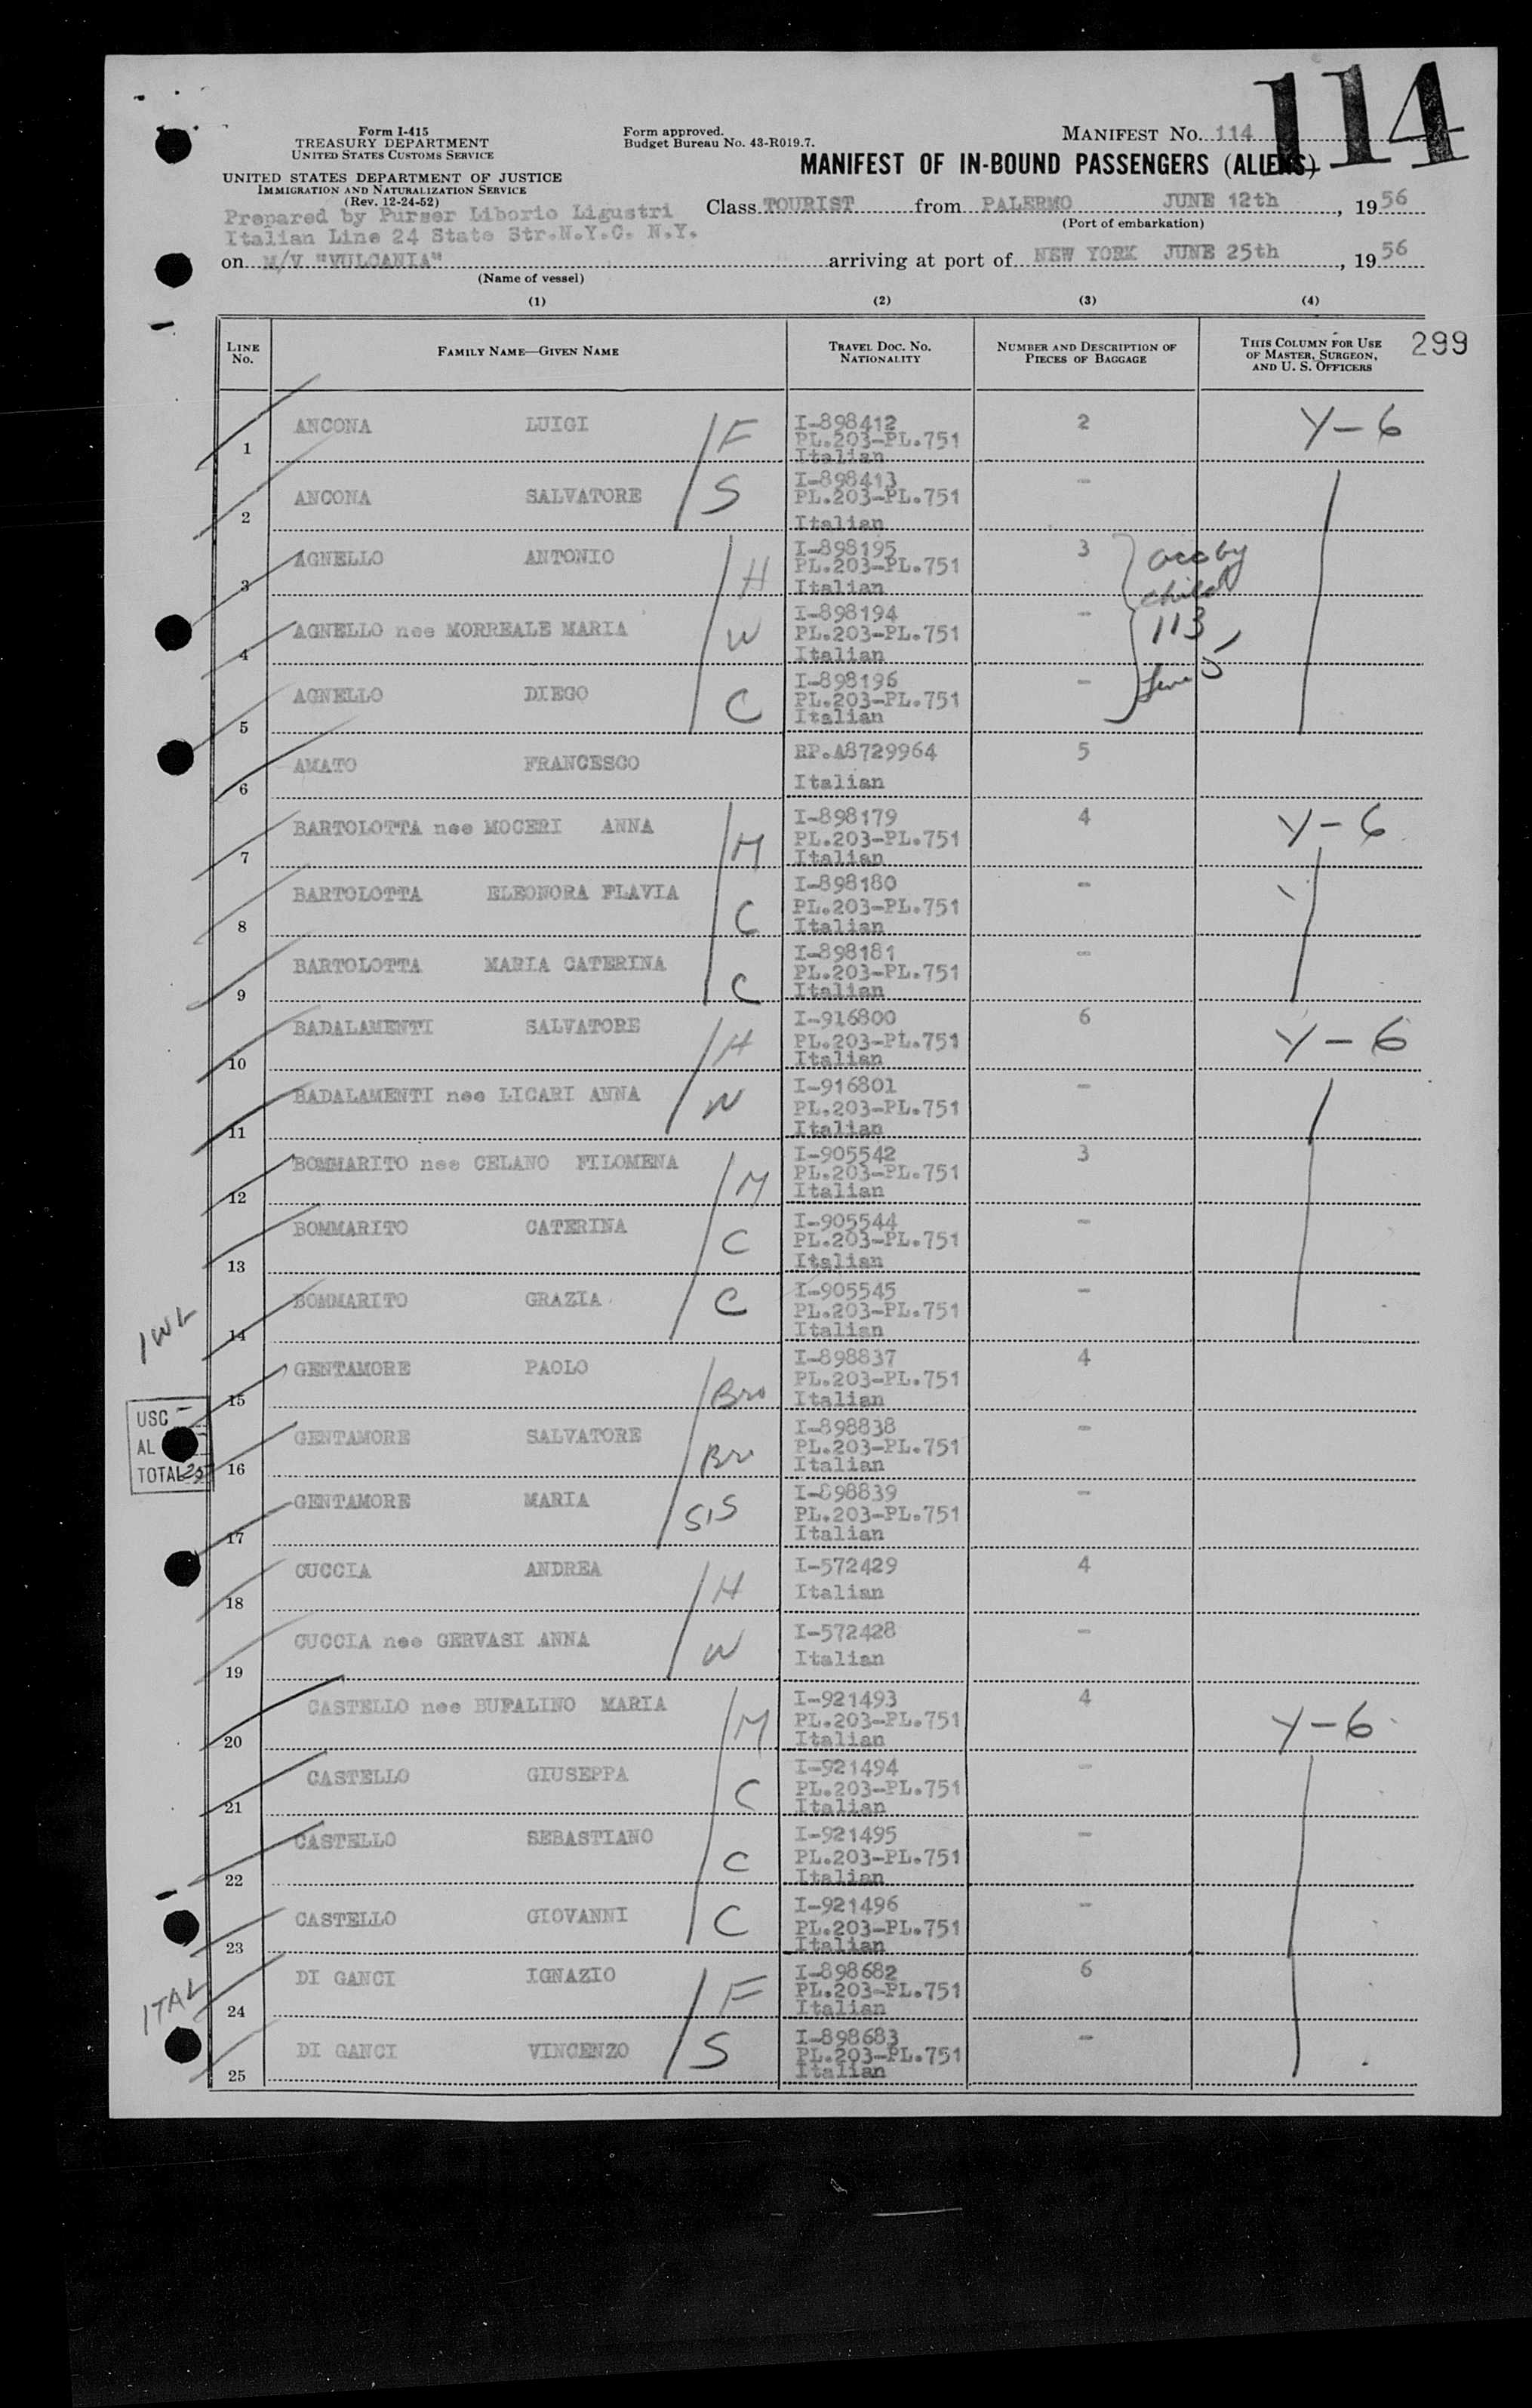 114
Form I-415
TREASURY DEPARTMENT
UNITED STATES CUSTOMS SERVICE
UNITED STATES DEPARTMENT OF JUSTICE
IMMIGRATION AND NATURALIZATION SERVICE
(Rev. 12-24-52)
Form approved.
Budget Bureau No. 43-R019.7.
MANIFEST No. 114
MANIFEST OF IN-BOUND PASSENGERS (ALIENS)
Prepared by Purser Liborio Ligustri
Italian Line 24 State Str.N.Y.C. N.Y.
Class TOURIST from PALERMO JUNE 12th, 1956
(Port of embarkation)
on M/V "VULCANIA" arriving at port of NEW YORK JUNE 25th, 1956
(Name of vessel)
(1) (2) (3) (4)
LINE No. FAMILY NAME—GIVEN NAME TRAVEL DOC. NO. NATIONALITY NUMBER AND DESCRIPTION OF PIECES OF BAGGAGE THIS COLUMN FOR USE OF MASTER, SURGEON, AND U. S. OFFICERS 299
1 ANCONA LUIGI F I-898412 PL.203-PL.751 Italian 2 Y-6
2 ANCONA SALVATORE S I-898413 PL.203-PL.751 Italian -
3 AGNELLO ANTONIO H I-898195 PL.203-PL.751 Italian 3 acc by child
4 AGNELLO nee MORREALE MARIA W I-898194 PL.203-PL.751 Italian - 113
5 AGNELLO DIEGO C I-898196 PL.203-PL.751 Italian - line 5
6 AMATO FRANCESCO RP.A8729964 Italian 5
7 BARTOLOTTA nee MOCERI ANNA M I-898179 PL.203-PL.751 Italian 4 Y-6
8 BARTOLOTTA ELEONORA FLAVIA C I-898180 PL.203-PL.751 Italian -
9 BARTOLOTTA MARIA CATERINA C I-898181 PL.203-PL.751 Italian -
10 BADALAMENTI SALVATORE H I-916800 PL.203-PL.751 Italian 6 Y-6
11 BADALAMENTI nee LICARI ANNA W I-916801 PL.203-PL.751 Italian -
12 BOMMARITO nee CELANO FILOMENA M I-905542 PL.203-PL.751 Italian 3
13 BOMMARITO CATERINA C I-905544 PL.203-PL.751 Italian -
14 BOMMARITO GRAZIA C I-905545 PL.203-PL.751 Italian -
15 GENTAMORE PAOLO Bro I-898837 PL.203-PL.751 Italian 4
16 GENTAMORE SALVATORE Bro I-898838 PL.203-PL.751 Italian -
17 GENTAMORE MARIA SIS I-898839 PL.203-PL.751 Italian -
18 CUCCIA ANDREA H I-572429 Italian 4
19 CUCCIA nee GERVASI ANNA W I-572428 Italian -
20 CASTELLO nee BUFALINO MARIA M I-921493 PL.203-PL.751 Italian 4 Y-6
21 CASTELLO GIUSEPPA C I-921494 PL.203-PL.751 Italian -
22 CASTELLO SEBASTIANO C I-921495 PL.203-PL.751 Italian -
23 CASTELLO GIOVANNI C I-921496 PL.203-PL.751 Italian -
24 DI GANCI IGNAZIO F I-898682 PL.203-PL.751 Italian 6
25 DI GANCI VINCENZO S I-898683 PL.203-PL.751 Italian -
USC -
AL
TOTAL 25
ITAL